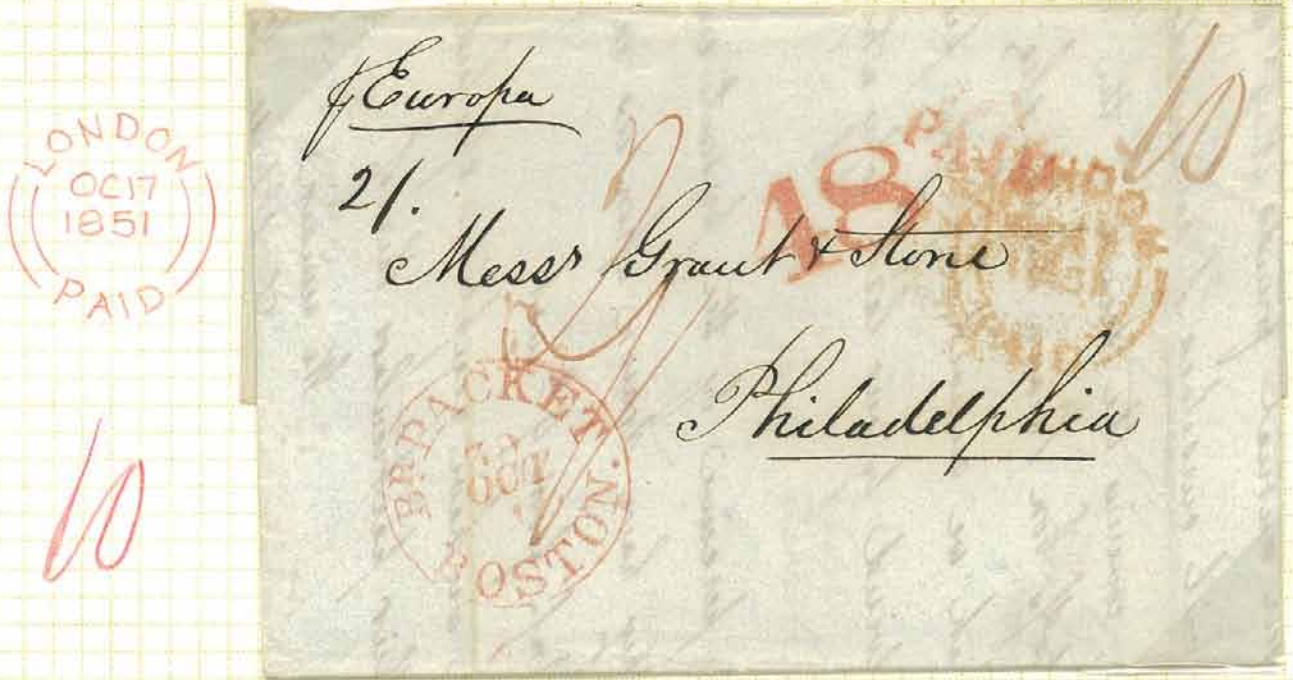 LONDON
OC17
1851
PAID
10
p Europa
2/.
Messrs Grant & Stone
Philadelphia
48
PAID
10
2/
BR. PACKET
OCT
BOSTON.